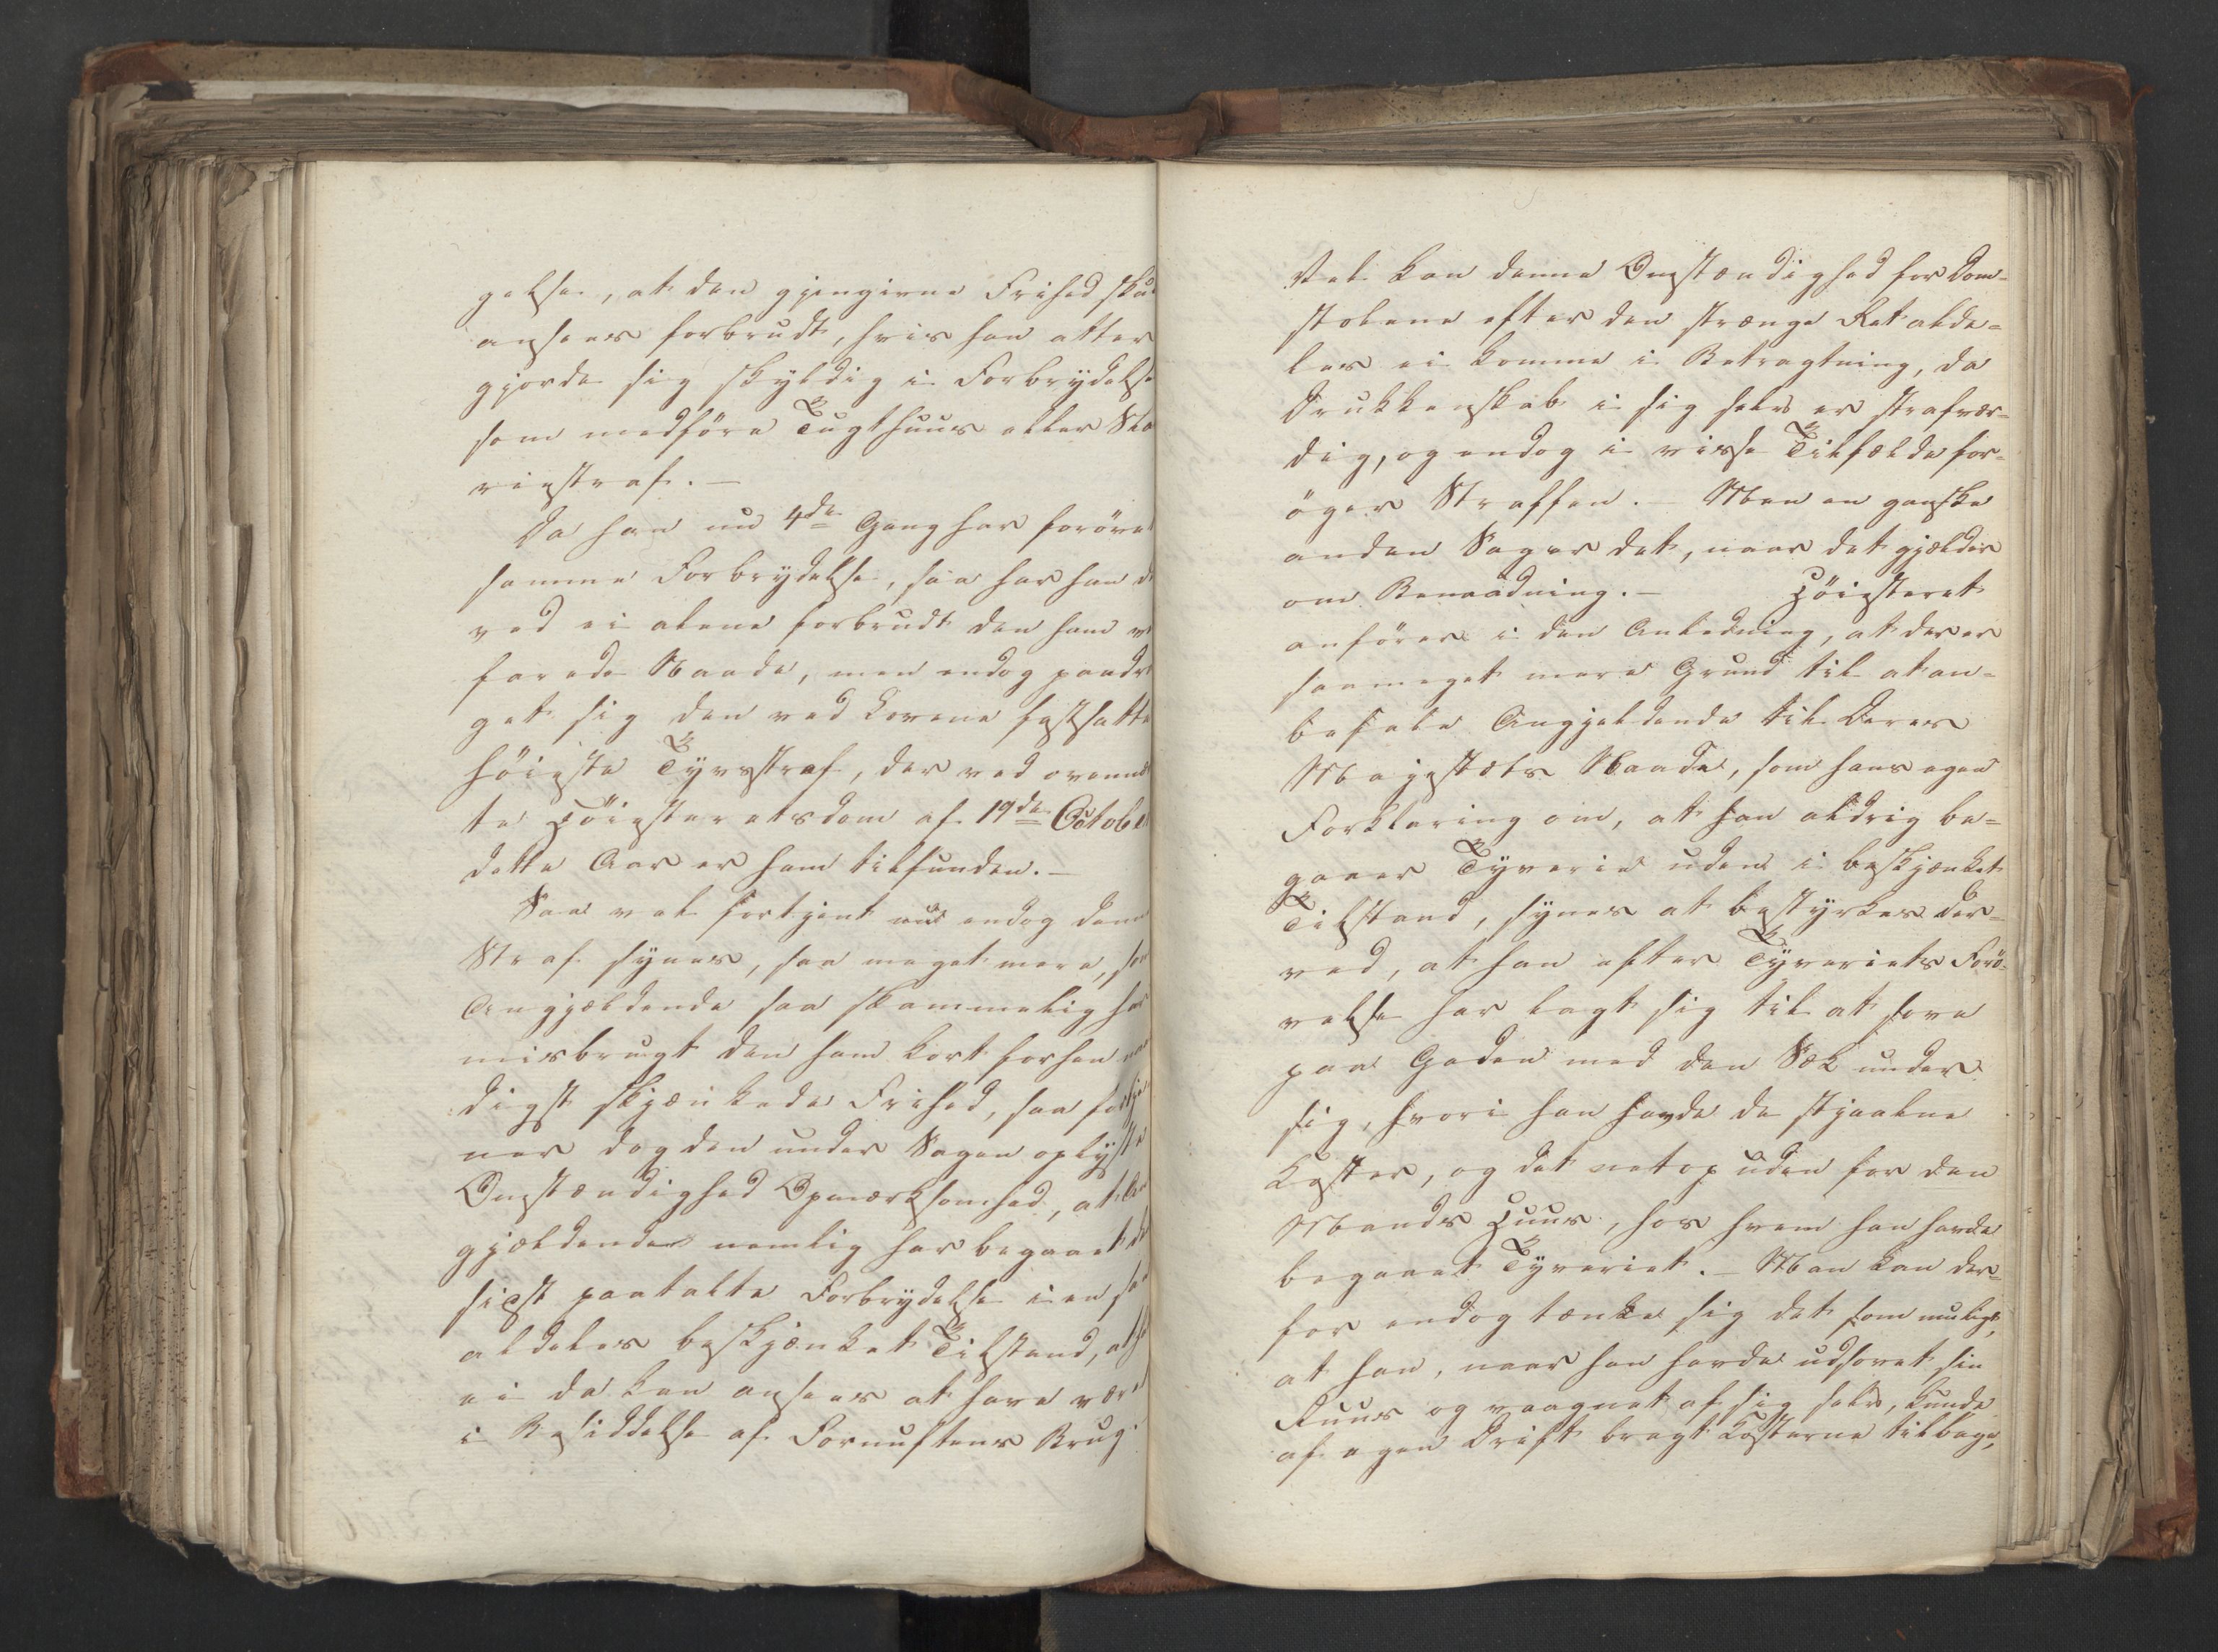 gelse, at den gjengivne Frihed skul
ansees forbrudt, hvis han atter
gjorde sig skyldig i Forbrydelse
som medføre Tugthuus eller Sla
viestraf. —
Da han nu 4de Gang har forøvet
samme Forbrydelse, saa har han d
ved ei alene forbrudt den ham ve
farede Naade, men endog paadra
get sig den ved Lovene fastsatte
høieste Tyvsstraf, der ved ovennæv
te Høiesteretsdom af 19de October
dette Aar er ham tilfunden. —
Saa vel fortjent nu endog denne
Straf synes, saa meget mere, som
Angjældende saa skammelig har
misbrugt den ham kort forhen naa
digst skjænkede Frihed, saa fortje
ner dog den under Sagen oplyste
Omstændighed Opmærksomhed, at An
gjældende nemlig har begaaet de
sidst paatalte Forbrydelse i en saa
aldeles beskjænket Tilstand, at h
ei da kan ansees at have været
i Besiddelse af Fornuftens Brug.
Vel kan denne Omstændighed for Dom=
stolene efter den strænge Ret alde=
les ei komme i Betragtning, da
Drukkenskab i sig selv er strafvær=
dig, og endog i visse Tilfælde for=
øger Straffen. — Men en ganske
anden Sag er det, naar det gjælder
om Benaadning. — Høiesteret
anfører i den Anledning, at der er
saameget mere Grund til at an=
befale Angjeldende til Deres
Majestæts Naade, som hans egen
Forklaring om, at han aldrig be=
gaaer Tyverie uden i beskjænket
Tilstand, synes at bestyrkes der=
ved, at han efter Tyveriets Forø=
velse har lagt sig til at sove
paa Gaden med den Sæk under
sig, hvori han havde de stjaalne
Koster, og det netop uden for den
Mands Huus, hos hvem han havde
begaaet Tyveriet. — Man kan der=
for endog tænke sig det som muligt,
at han, naar han havde udsovet sin
Ruus og vaagnet af sig selv, kunde
af egen Drift bragt Kosterne tilbage,